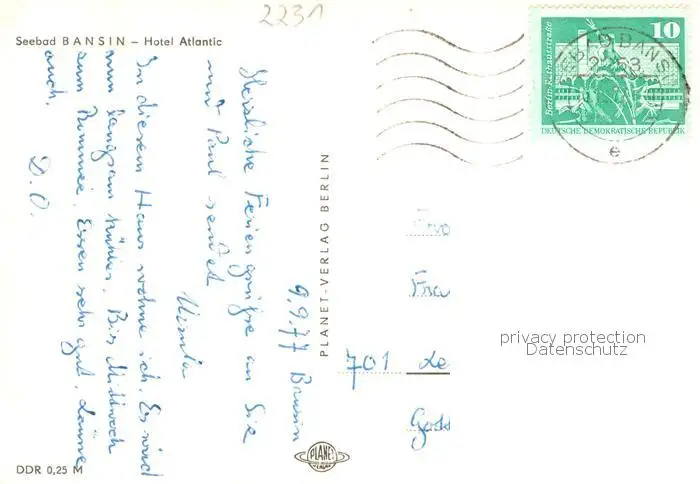 2231
Seebad BANSIN – Hotel Atlantic
10
Berlin-Rathausstraße
DEUTSCHE DEMOKRATISCHE REPUBLIK
2253
BANSIN
e
9.9.77 Bansin
Herzliche Feriengrüße an Sie
und Paul sendet
Ursula
In diesem Haus wohne ich. Es wird
nun langsam kühler. Bis Mittwoch
zum Bummel. Essen sehr gut. Laune
auch.
D. O.
PLANET-VERLAG BERLIN
Frau
701 Le
privacy protection
Datenschutz
PLANET
VERLAG
DDR 0,25 M